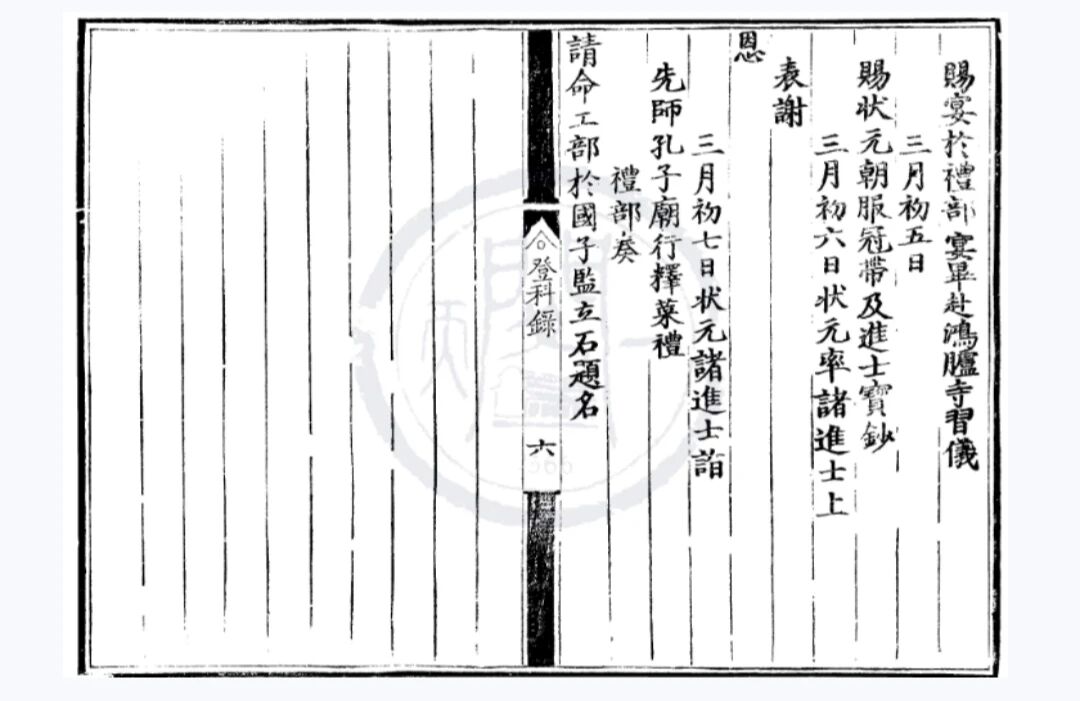 賜宴於禮部宴畢赴鴻臚寺習儀
三月初五日
賜状元朝服冠帶及進士寶鈔
三月初六日状元率諸進士上
表謝
恩
三月初七日状元諸進士詣
先師孔子廟行釋菜禮
禮部奏
請命工部於國子監立石題名
登科錄
六